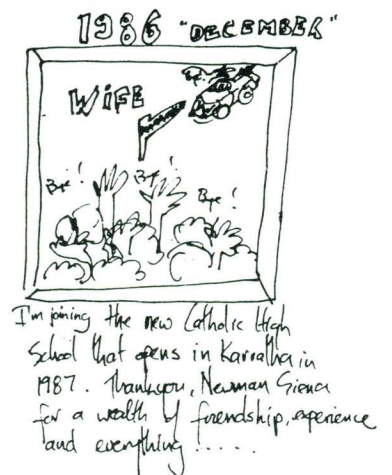 1986 "DECEMBER"
WIFE
Bye!
Bye! Bye!
Bye!
I'm joining the new Catholic High
School that opens in Karratha in
1987. Thankyou, Newman Siena
for a wealth of friendship, experience
and everything!....